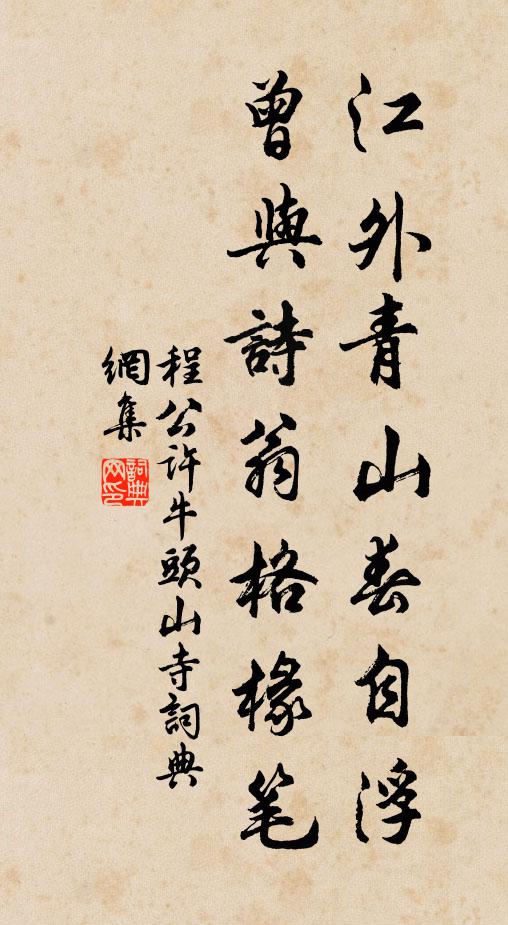 江外青山春自浮
曾與詩翁格椽笔
程公許牛頭山寺詞典
網集
詞典
网印